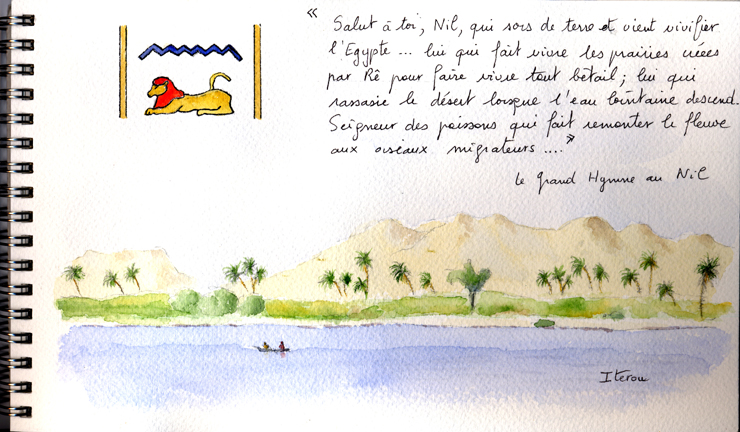 « Salut à toi, Nil, qui sors de terre et vient vivifier
l'Egypte ... lui qui fait vivre les prairies créées
par Rê pour faire vivre tout bétail ; lui qui
rassasie le désert lorsque l'eau lointaine descend.
Seigneur des poissons qui fait remonter le fleuve
aux oiseaux migrateurs .... »
le Grand Hymne au Nil
Iterou